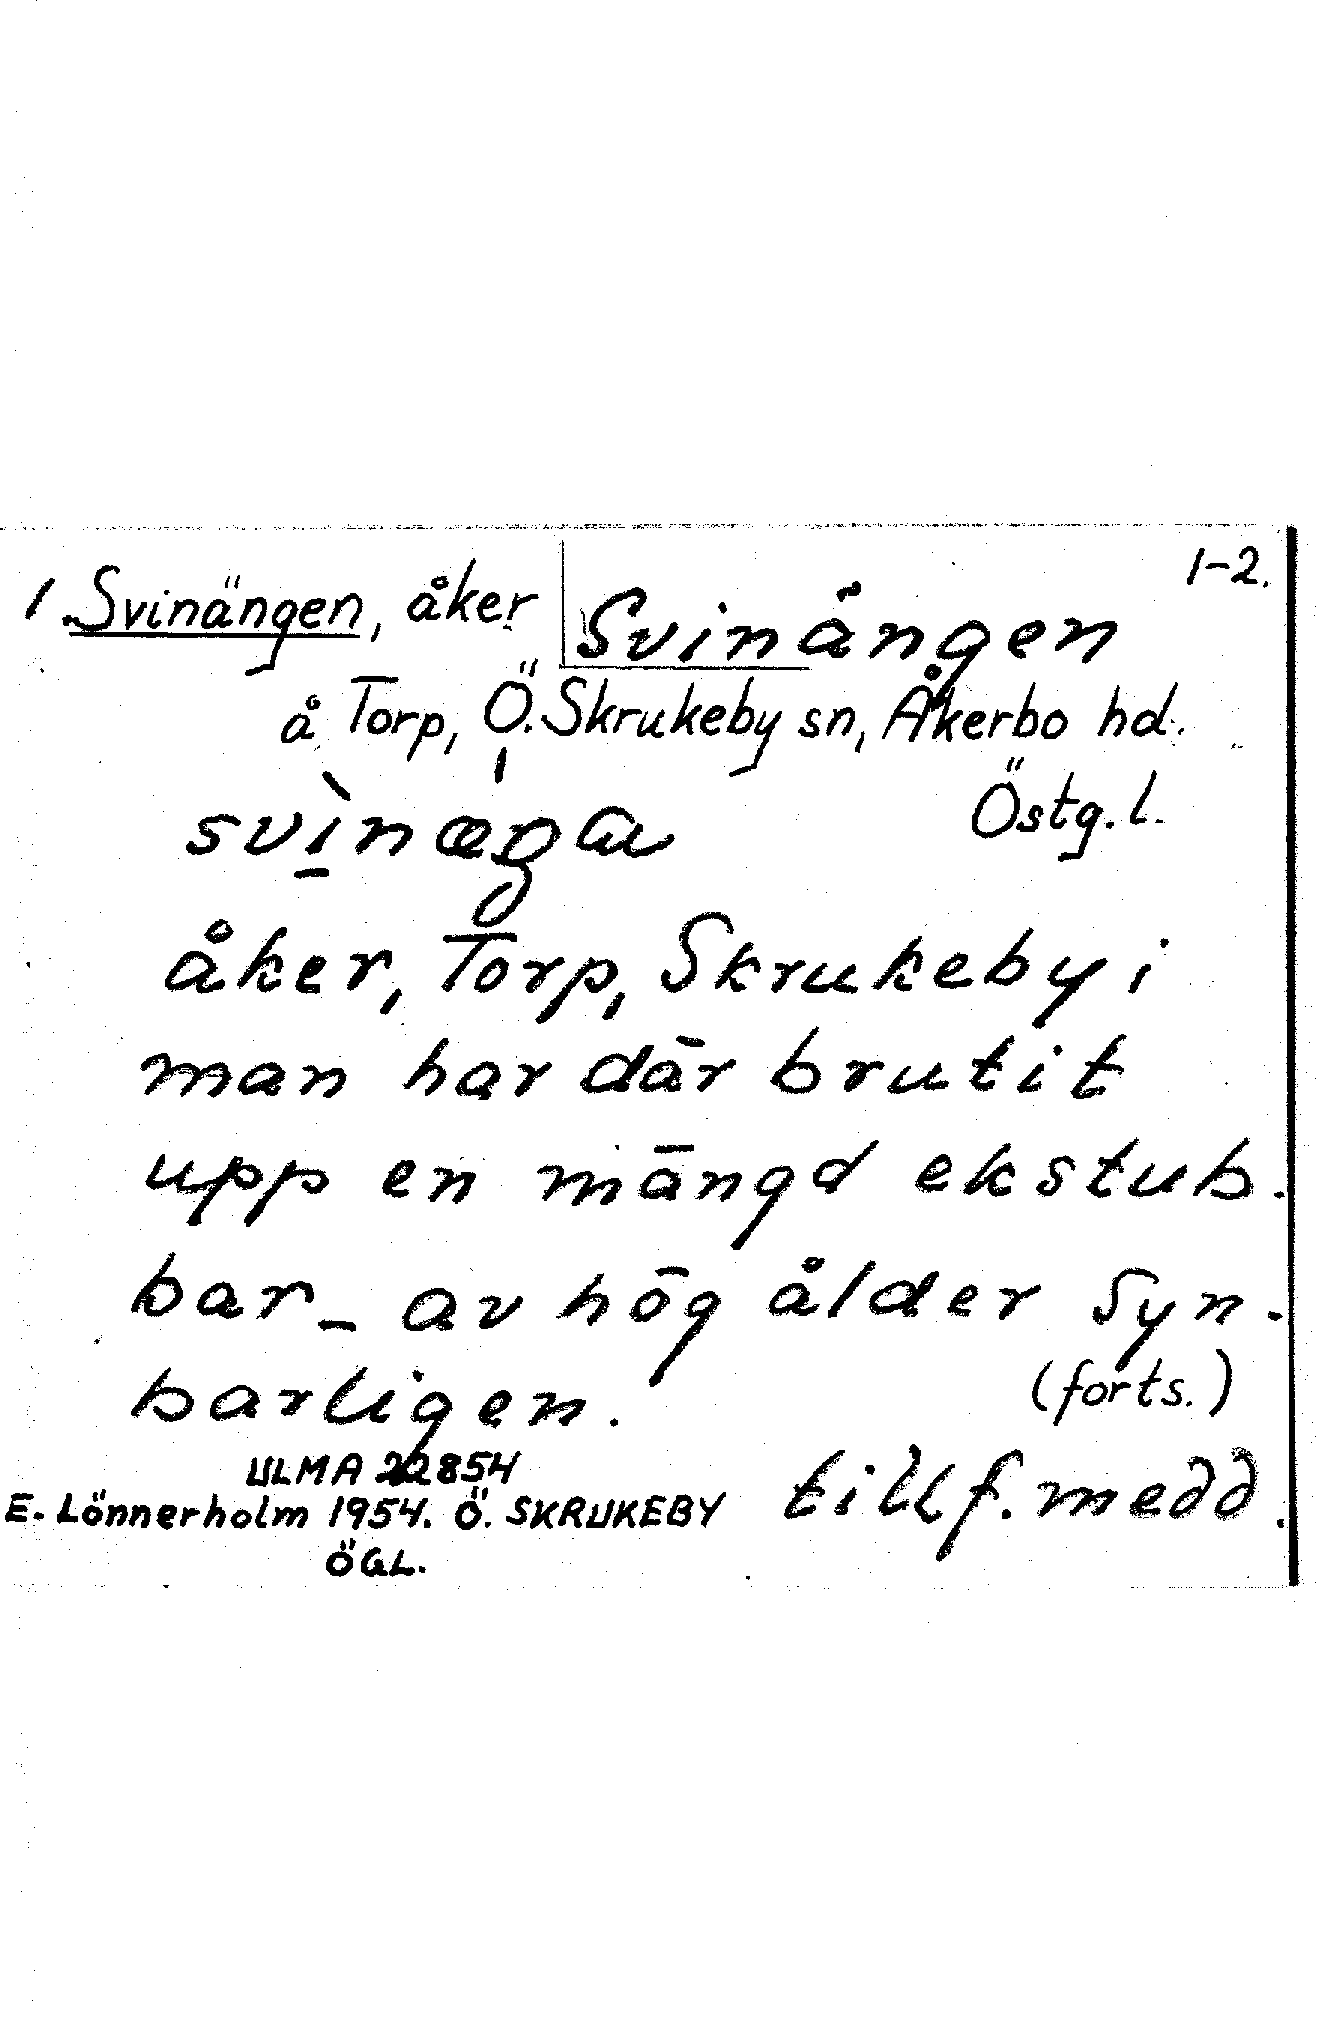 1-2.
1. Svinängen, åker
Svinängen
å Torp, Ö. Skrukeby sn, Åkerbo hd.
Östg. l.
åker, Torp, Skrukeby i
man har där brutit
upp en mängd ekstub-
bar – av hög ålder syn-
barligen.
(forts.)
ULMA 22854
E. Lönnerholm 1954. Ö. SKRUKEBY
ÖGL.
tillf. medd.